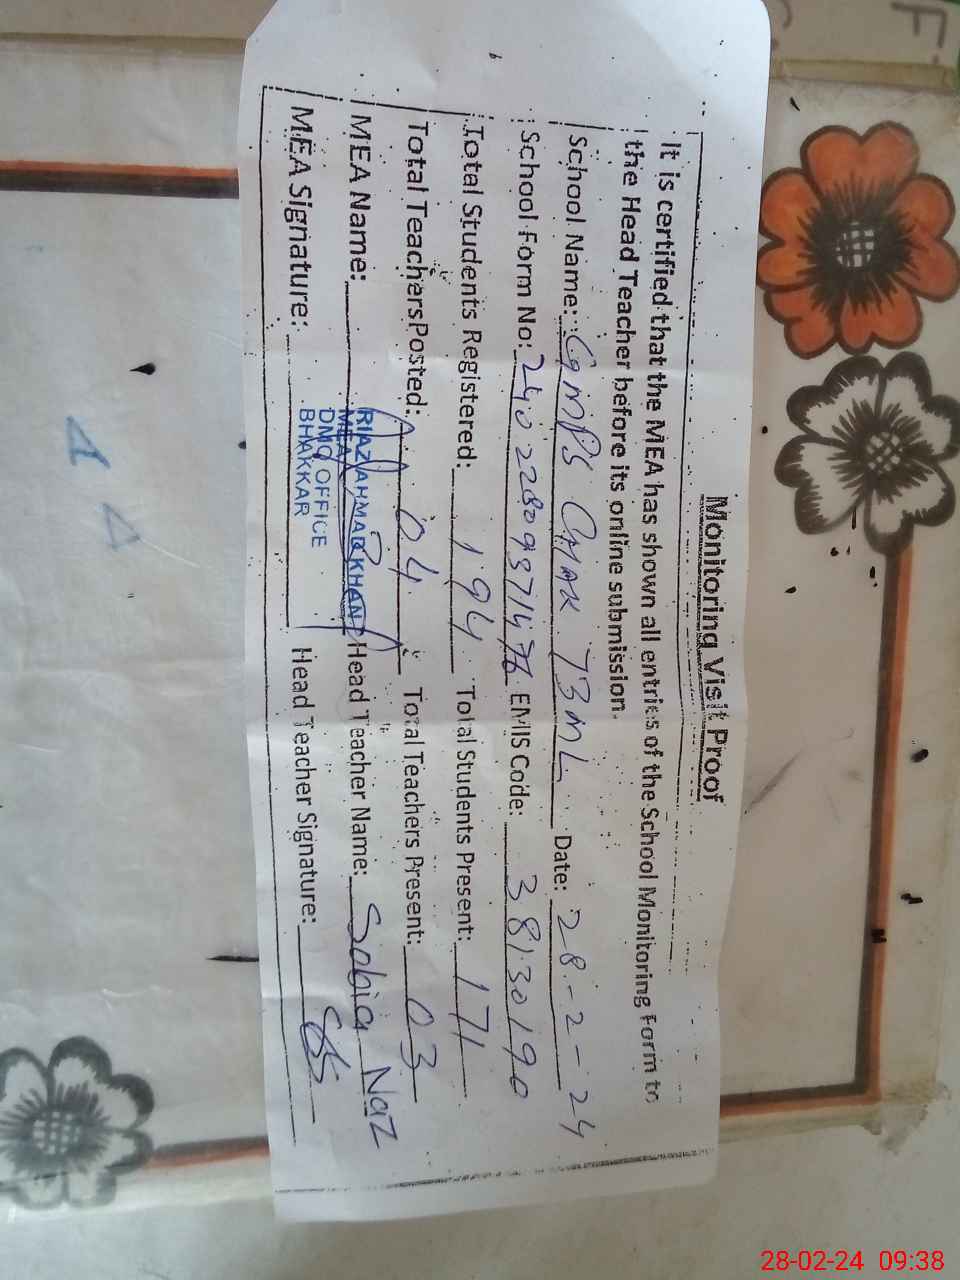 Monitoring Visit Proof
It is certified that the MEA has shown all entries of the School Monitoring Form to
the Head Teacher before its online submission.
School Name: GMPS Chak 73 ML Date: 28-2-24
School Form No: EMIS Code: 38130190
Total Students Registered: 194 Total Students Present: 171
Total Teachers Posted: 04 Total Teachers Present: 03
MEA Name: RIAZ AHMAD KHAN Head Teacher Name: Sobia Naz
MEA
DMO OFFICE
BHAKKAR
MEA Signature: Head Teacher Signature:
28-02-24 09:38